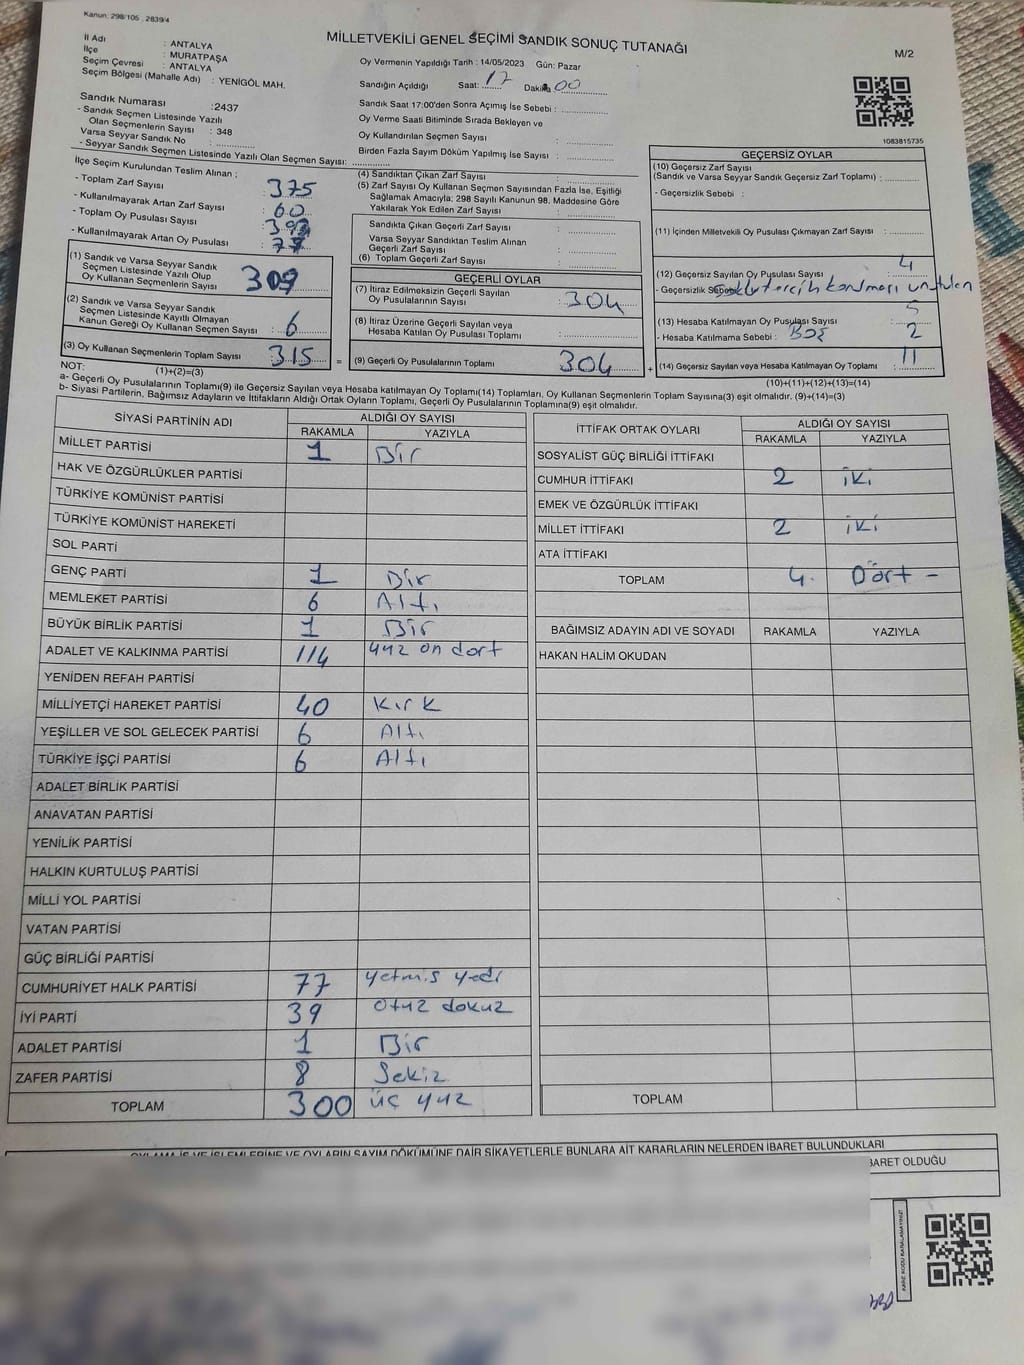 Kanun: 298/105 , 2839/4
MİLLETVEKİLİ GENEL SEÇİMİ SANDIK SONUÇ TUTANAĞI
M/2
İl Adı : ANTALYA
İlçe : MURATPAŞA
Seçim Çevresi : ANTALYA
Seçim Bölgesi (Mahalle Adı) : YENİGÖL MAH.
Sandık Numarası :2437
- Sandık Seçmen Listesinde Yazılı
Olan Seçmenlerin Sayısı : 348
Varsa Seyyar Sandık No :
- Seyyar Sandık Seçmen Listesinde Yazılı Olan Seçmen Sayısı:
Oy Vermenin Yapıldığı Tarih : 14/05/2023 Gün: Pazar
Sandığın Açıldığı Saat: 17 Dakika 00
Sandık Saat 17:00'den Sonra Açmış İse Sebebi :
Oy Verme Saati Bitiminde Sırada Bekleyen ve
Oy Kullandırılan Seçmen Sayısı :
Birden Fazla Sayım Döküm Yapılmış İse Sayısı :
1083815735
İlçe Seçim Kurulundan Teslim Alınan ;
- Toplam Zarf Sayısı : 375
- Kullanılmayarak Artan Zarf Sayısı : 60
- Toplam Oy Pusulası Sayısı :
- Kullanılmayarak Artan Oy Pusulası :
(1) Sandık ve Varsa Seyyar Sandık
Seçmen Listesinde Yazılı Olup
Oy Kullanan Seçmenlerin Sayısı 309
(2) Sandık ve Varsa Seyyar Sandık
Seçmen Listesinde Kayıtlı Olmayan
Kanun Gereği Oy Kullanan Seçmen Sayısı : 6
(3) Oy Kullanan Seçmenlerin Toplam Sayısı 315 =
(1)+(2)=(3)
(4) Sandıktan Çıkan Zarf Sayısı :
(5) Zarf Sayısı Oy Kullanan Seçmen Sayısından Fazla İse, Eşitliği
Sağlamak Amacıyla; 298 Sayılı Kanunun 98. Maddesine Göre
Yakılarak Yok Edilen Zarf Sayısı :
Sandıkta Çıkan Geçerli Zarf Sayısı :
Varsa Seyyar Sandıktan Teslim Alınan
Geçerli Zarf Sayısı :
(6) Toplam Geçerli Zarf Sayısı :
GEÇERLİ OYLAR
(7) İtiraz Edilmeksizin Geçerli Sayılan
Oy Pusulalarının Sayısı : 304
(8) İtiraz Üzerine Geçerli Sayılan veya
Hesaba Katılan Oy Pusulası Toplamı :
(9) Geçerli Oy Pusulalarının Toplamı 304 +
GEÇERSİZ OYLAR
(10) Geçersiz Zarf Sayısı
(Sandık ve Varsa Seyyar Sandık Geçersiz Zarf Toplamı) :
- Geçersizlik Sebebi :
(11) İçinden Milletvekili Oy Pusulası Çıkmayan Zarf Sayısı :
(12) Geçersiz Sayılan Oy Pusulası Sayısı : 4
- Geçersizlik Sebebi tercih konulması unutulan
5
(13) Hesaba Katılmayan Oy Pusulası Sayısı : 2
- Hesaba Katılmama Sebebi : BOŞ
(14) Geçersiz Sayılan veya Hesaba Katılmayan Oy Toplamı : 11
(10)+(11)+(12)+(13)=(14)
NOT:
a- Geçerli Oy Pusulalarının Toplamı(9) ile Geçersiz Sayılan veya Hesaba katılmayan Oy Toplamı(14) Toplamları, Oy Kullanan Seçmenlerin Toplam Sayısına(3) eşit olmalıdır. (9)+(14)=(3)
b- Siyasi Partilerin, Bağımsız Adayların ve İttifakların Aldığı Ortak Oyların Toplamı, Geçerli Oy Pusulalarının Toplamına(9) eşit olmalıdır.
SİYASİ PARTİNİN ADI ALDIĞI OY SAYISI
RAKAMLA YAZIYLA
MİLLET PARTİSİ 1 Bir
HAK VE ÖZGÜRLÜKLER PARTİSİ
TÜRKİYE KOMÜNİST PARTİSİ
TÜRKİYE KOMÜNİST HAREKETİ
SOL PARTİ
GENÇ PARTİ 1 Bir
MEMLEKET PARTİSİ 6 Altı
BÜYÜK BİRLİK PARTİSİ 1 Bir
ADALET VE KALKINMA PARTİSİ 114 yüz on dört
YENİDEN REFAH PARTİSİ
MİLLİYETÇİ HAREKET PARTİSİ 40 Kırk
YEŞİLLER VE SOL GELECEK PARTİSİ 6 Altı
TÜRKİYE İŞÇİ PARTİSİ 6 Altı
ADALET BİRLİK PARTİSİ
ANAVATAN PARTİSİ
YENİLİK PARTİSİ
HALKIN KURTULUŞ PARTİSİ
MİLLİ YOL PARTİSİ
VATAN PARTİSİ
GÜÇ BİRLİĞİ PARTİSİ
CUMHURİYET HALK PARTİSİ 77 yetmiş yedi
İYİ PARTİ 39 otuz dokuz
ADALET PARTİSİ 1 Bir
ZAFER PARTİSİ 8 Sekiz
TOPLAM 300 üç yüz
İTTİFAK ORTAK OYLARI ALDIĞI OY SAYISI
RAKAMLA YAZIYLA
SOSYALİST GÜÇ BİRLİĞİ İTTİFAKI
CUMHUR İTTİFAKI 2 iki
EMEK VE ÖZGÜRLÜK İTTİFAKI
MİLLET İTTİFAKI 2 iki
ATA İTTİFAKI
TOPLAM 4 Dört -
BAĞIMSIZ ADAYIN ADI VE SOYADI RAKAMLA YAZIYLA
HAKAN HALİM OKUDAN
TOPLAM
OYLAMA İŞ VE İŞLEMLERİNE VE OYLARIN SAYIM DÖKÜMÜNE DAİR ŞİKAYETLERLE BUNLARA AİT KARARLARIN NELERDEN İBARET BULUNDUKLARI
BARET OLDUĞU
KARE KODU KARALAMAYINIZ!